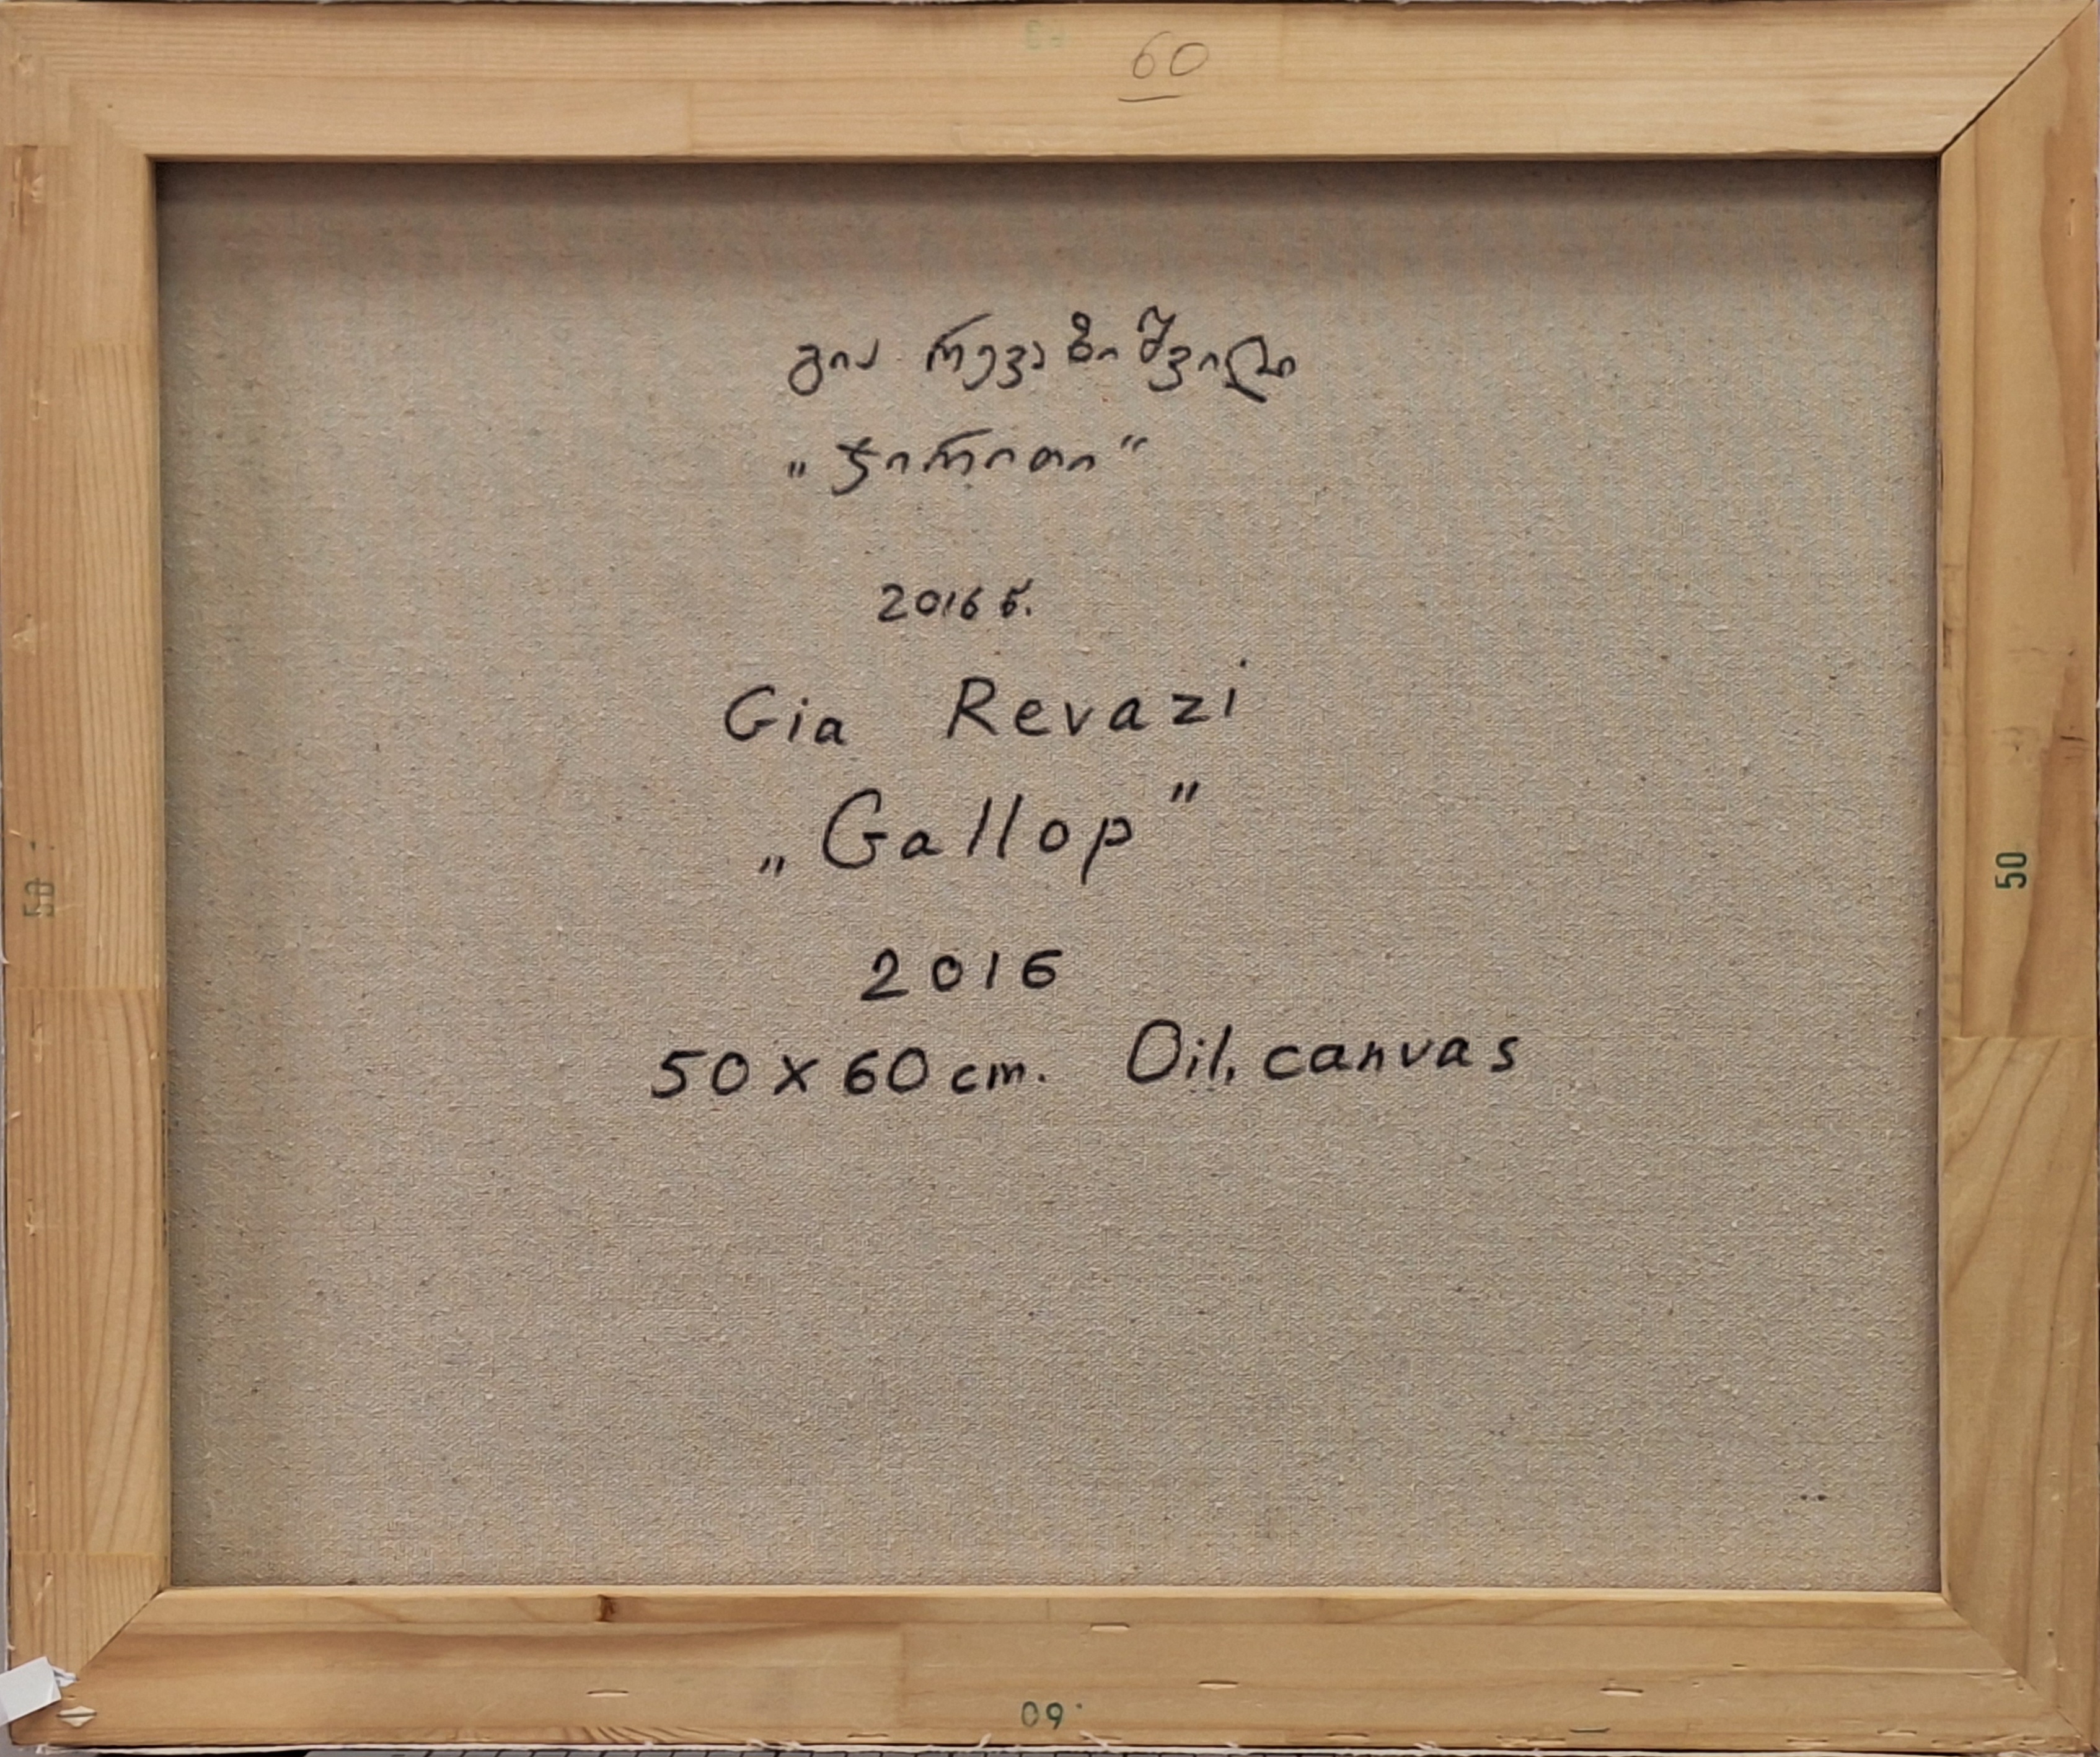 60
გია რევაზიშვილი
„ჯირითი“
2016 წ.
Gia Revazi
„Gallop”
2016
50 x 60 cm. Oil, canvas
50
50
60